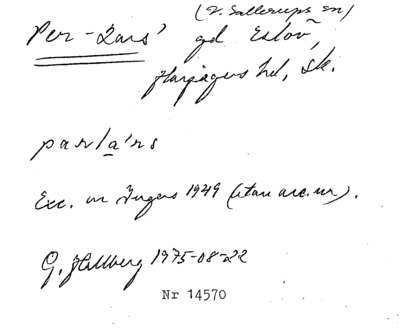 (V. Sallerups sn)
Per-Lars' gd Eslöv,
Harjagers hd, Sk.
parla'rs
Exc. ur Ingers 1949 (utan acc.nr).
G. Hallberg 1975-08-22
Nr 14570